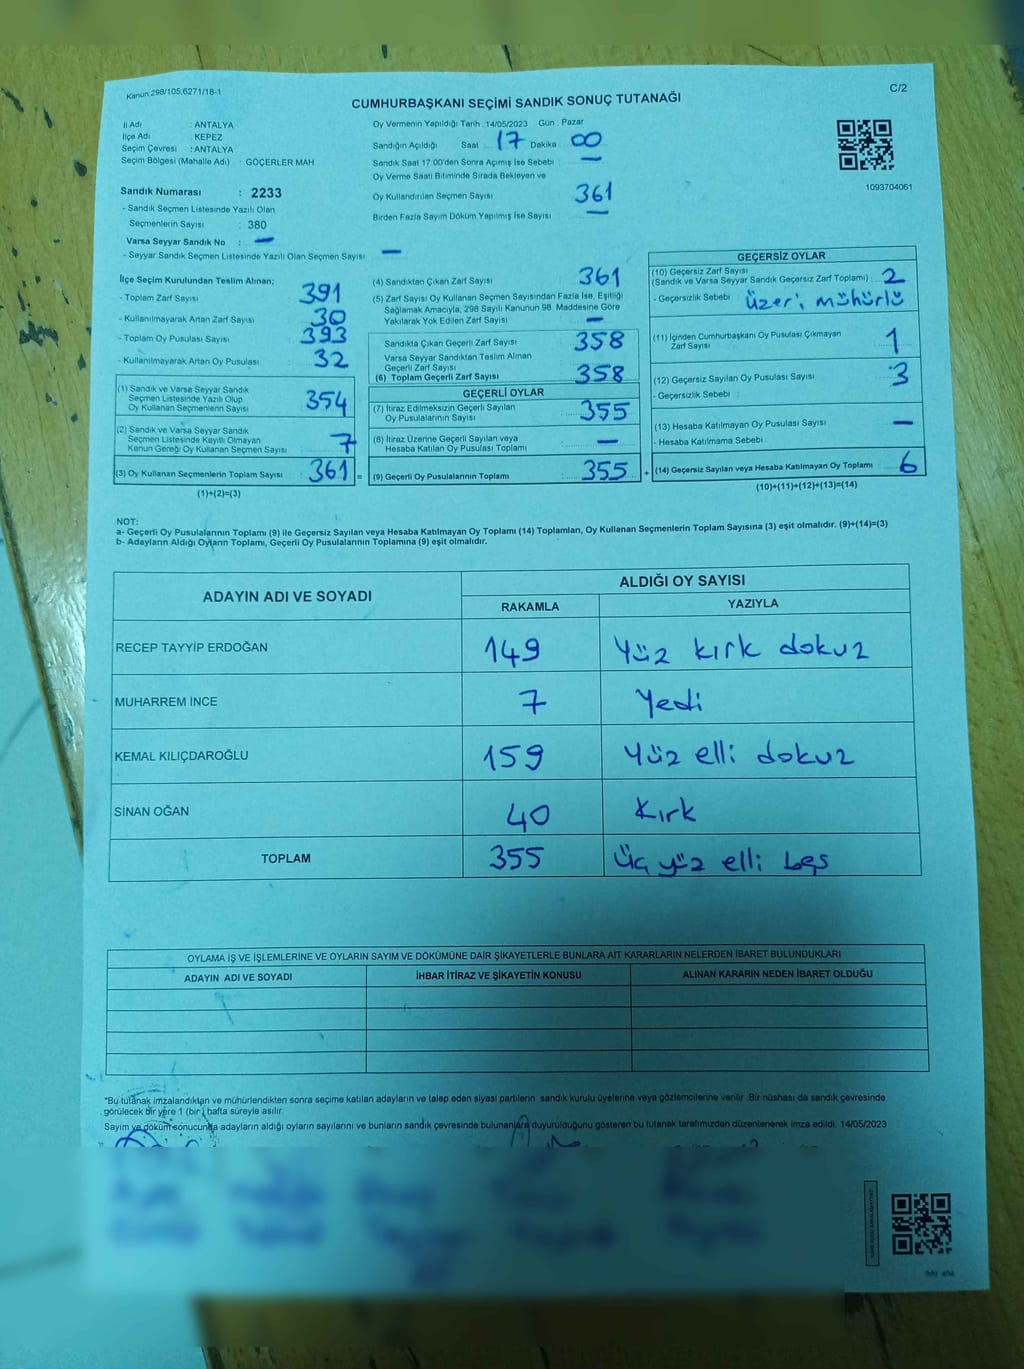 Kanun:298/105,6271/18-1
C/2
CUMHURBAŞKANI SEÇİMİ SANDIK SONUÇ TUTANAĞI
İl Adı : ANTALYA
İlçe Adı : KEPEZ
Seçim Çevresi : ANTALYA
Seçim Bölgesi (Mahalle Adı) : GÖÇERLER MAH.
Sandık Numarası : 2233
- Sandık Seçmen Listesinde Yazılı Olan
Seçmenlerin Sayısı : 380
Varsa Seyyar Sandık No : —
- Seyyar Sandık Seçmen Listesinde Yazılı Olan Seçmen Sayısı : —
Oy Vermenin Yapıldığı Tarih : 14/05/2023 Gün : Pazar
Sandığın Açıldığı Saat : 17 Dakika : 00
Sandık Saat 17.00'den Sonra Açılmış İse Sebebi : —
Oy Verme Saati Bitiminde Sırada Bekleyen ve
Oy Kullandırılan Seçmen Sayısı 361
Birden Fazla Sayım Döküm Yapılmış İse Sayısı —
1093704061
İlçe Seçim Kurulundan Teslim Alınan;
- Toplam Zarf Sayısı 391
- Kullanılmayarak Artan Zarf Sayısı 30
- Toplam Oy Pusulası Sayısı 393
- Kullanılmayarak Artan Oy Pusulası 32
(1) Sandık ve Varsa Seyyar Sandık
Seçmen Listesinde Yazılı Olup
Oy Kullanan Seçmenlerin Sayısı 354
(2) Sandık ve Varsa Seyyar Sandık
Seçmen Listesinde Kayıtlı Olmayan
Kanun Gereği Oy Kullanan Seçmen Sayısı 7
(3) Oy Kullanan Seçmenlerin Toplam Sayısı 361 =
(1)+(2)=(3)
(4) Sandıktan Çıkan Zarf Sayısı 361
(5) Zarf Sayısı Oy Kullanan Seçmen Sayısından Fazla İse, Eşitliği
Sağlamak Amacıyla, 298 Sayılı Kanunun 98. Maddesine Göre
Yakılarak Yok Edilen Zarf Sayısı —
Sandıkta Çıkan Geçerli Zarf Sayısı 358
Varsa Seyyar Sandıktan Teslim Alınan
Geçerli Zarf Sayısı
(6) Toplam Geçerli Zarf Sayısı 358
GEÇERLİ OYLAR
(7) İtiraz Edilmeksizin Geçerli Sayılan
Oy Pusulalarının Sayısı 355
(8) İtiraz Üzerine Geçerli Sayılan veya
Hesaba Katılan Oy Pusulası Toplamı —
(9) Geçerli Oy Pusulalarının Toplamı 355 +
GEÇERSİZ OYLAR
(10) Geçersiz Zarf Sayısı
(Sandık ve Varsa Seyyar Sandık Geçersiz Zarf Toplamı) : 2
- Geçersizlik Sebebi : üzeri mühürlü
(11) İçinden Cumhurbaşkanı Oy Pusulası Çıkmayan
Zarf Sayısı 1
(12) Geçersiz Sayılan Oy Pusulası Sayısı 3
- Geçersizlik Sebebi :
(13) Hesaba Katılmayan Oy Pusulası Sayısı —
- Hesaba Katılmama Sebebi :
(14) Geçersiz Sayılan veya Hesaba Katılmayan Oy Toplamı 6
(10)+(11)+(12)+(13)=(14)
NOT:
a- Geçerli Oy Pusulalarının Toplamı (9) ile Geçersiz Sayılan veya Hesaba Katılmayan Oy Toplamı (14) Toplamları, Oy Kullanan Seçmenlerin Toplam Sayısına (3) eşit olmalıdır. (9)+(14)=(3)
b- Adayların Aldığı Oyların Toplamı, Geçerli Oy Pusulalarının Toplamına (9) eşit olmalıdır.
ADAYIN ADI VE SOYADI
ALDIĞI OY SAYISI
RAKAMLA YAZIYLA
RECEP TAYYİP ERDOĞAN 149 Yüz kırk dokuz
MUHARREM İNCE 7 Yedi
KEMAL KILIÇDAROĞLU 159 Yüz elli dokuz
SİNAN OĞAN 40 Kırk
TOPLAM 355 Üç yüz elli beş
OYLAMA İŞ VE İŞLEMLERİNE VE OYLARIN SAYIM VE DÖKÜMÜNE DAİR ŞİKAYETLERLE BUNLARA AİT KARARLARIN NELERDEN İBARET BULUNDUKLARI
ADAYIN ADI VE SOYADI İHBAR İTİRAZ VE ŞİKAYETİN KONUSU ALINAN KARARIN NEDEN İBARET OLDUĞU
*Bu tutanak imzalandıktan ve mühürlendikten sonra seçime katılan adayların ve talep eden siyasi partilerin sandık kurulu üyelerine veya gözlemcilerine verilir. Bir nüshası da sandık çevresinde
görülecek bir yere 1 (bir) hafta süreyle asılır.
Sayım ve döküm sonucunda adayların aldığı oyların sayılarını ve bunların sandık çevresinde bulunanlara duyurulduğunu gösteren bu tutanak tarafımızdan düzenlenerek imza edildi. 14/05/2023